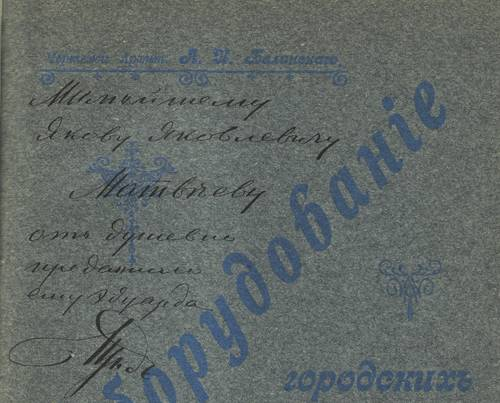 Чертежи Архит. А. И. Балинскаго
Милѣйшему
Якову Яковлевичу
Матвѣеву
отъ душевно
преданнаго
ему Эдуарда
борудованіе
городскихъ